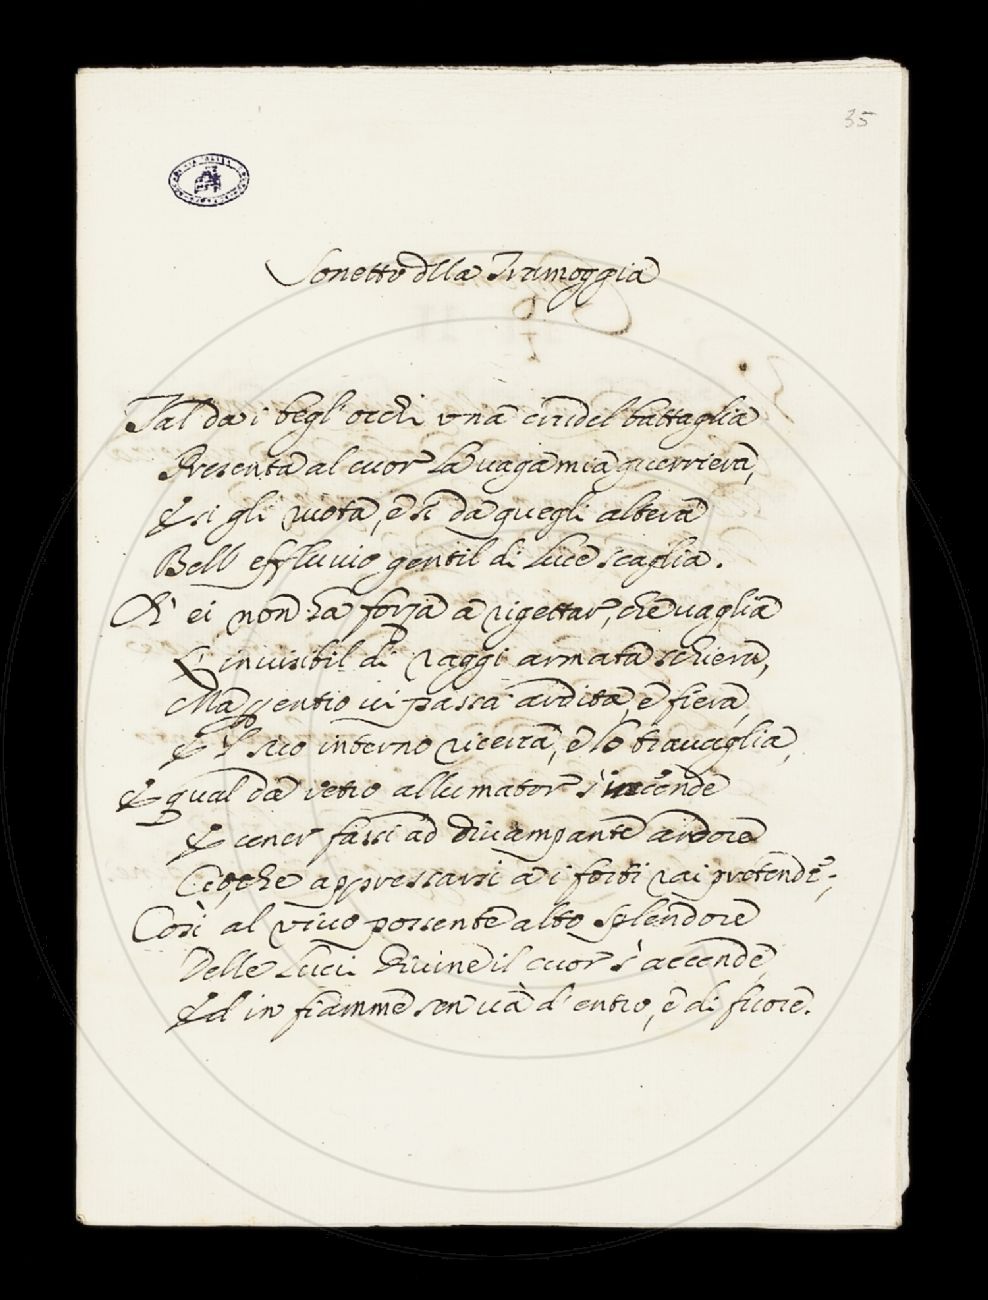 35
Sonetto dlla Tramoggia
Tal da i begl' occhi una crudel battaglia
Presenta al cuor la vaga mia guerriera,
E si gli ruota, e si da quegli altera
Bell effluvio gentil di luce scaglia.
Ch' ei non ha forza a rigettar, che vaglia
L' invisibil di raggi armata schiera,
Ma gentro vi passa ardita, e fiera,
E 'l suo interno ricerca, e lo travaglia,
E qual da vetro allumator s' incende
E cener fassi ad divampante ardore
Ciò, che appressarsi a i forti rai pretende;
Così al vivo possente alto splendore
Delle Luci Divine il cuor s' accende,
Ed in fiamme sen và d' entro, e di fuore.